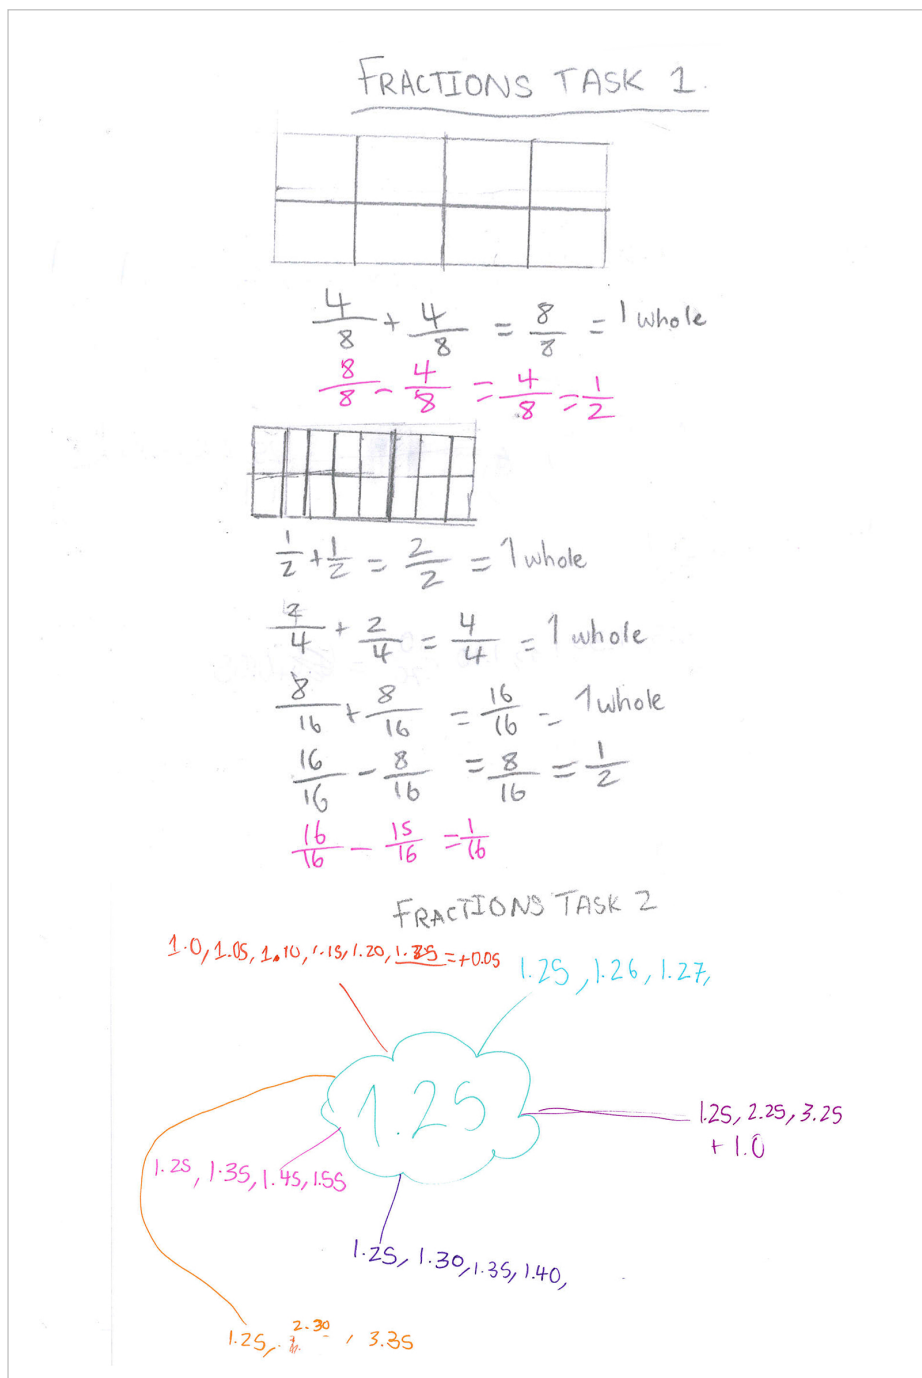 FRACTIONS TASK 1.
4/8 + 4/8 = 8/8 = 1 whole
8/8 - 4/8 = 4/8 = 1/2
1/2 + 1/2 = 2/2 = 1 whole
2/4 + 2/4 = 4/4 = 1 whole
8/16 + 8/16 = 16/16 = 1 whole
16/16 - 8/16 = 8/16 = 1/2
16/16 - 15/16 = 1/16
FRACTIONS TASK 2
1.0, 1.05, 1.10, 1.15, 1.20, 1.25 = +0.05
1.25, 1.26, 1.27,
1.25
1.25, 2.25, 3.25
+ 1.0
1.25, 1.35, 1.45, 1.55
1.25, 1.30, 1.35, 1.40,
1.25, 2.30, 3.35